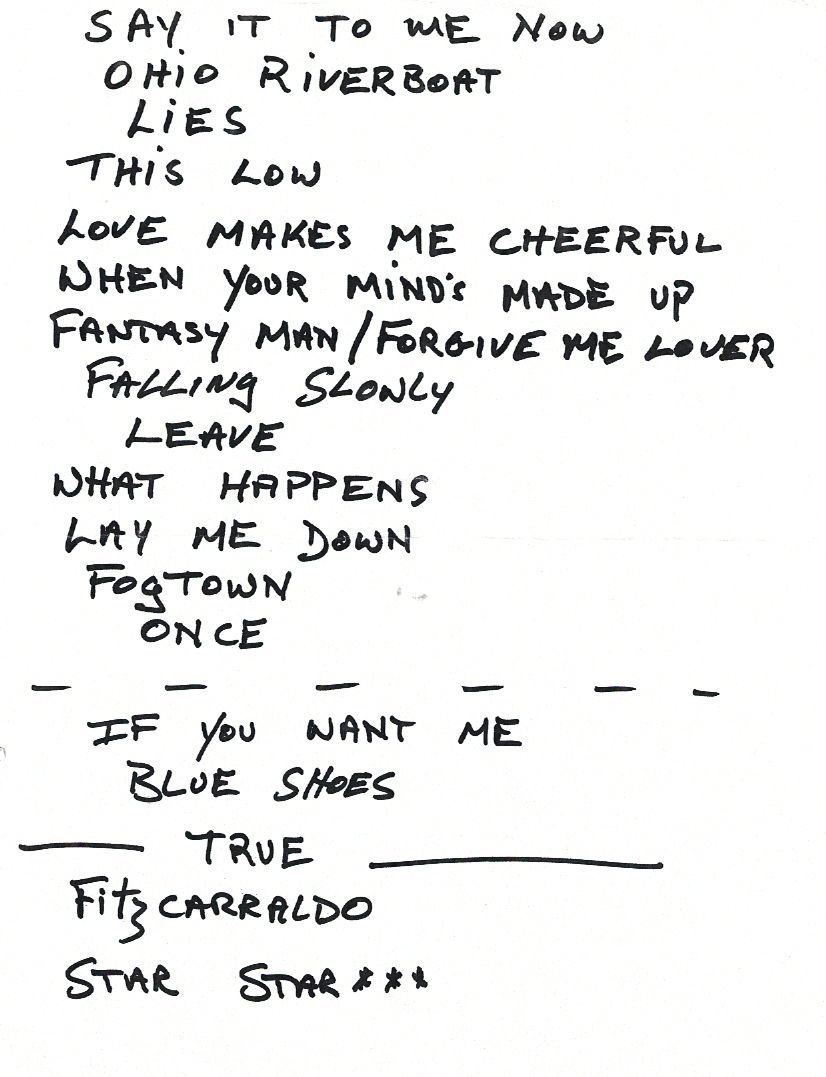 SAY IT TO ME NOW
OHIO RIVERBOAT
LIES
THIS LOW
LOVE MAKES ME CHEERFUL
WHEN YOUR MIND'S MADE UP
FANTASY MAN/FORGIVE ME LOVER
FALLING SLOWLY
LEAVE
WHAT HAPPENS
LAY ME DOWN
FOGTOWN
ONCE
— — — — — –
IF YOU WANT ME
BLUE SHOES
—— TRUE ————
FitzCARRALDO
STAR STAR***